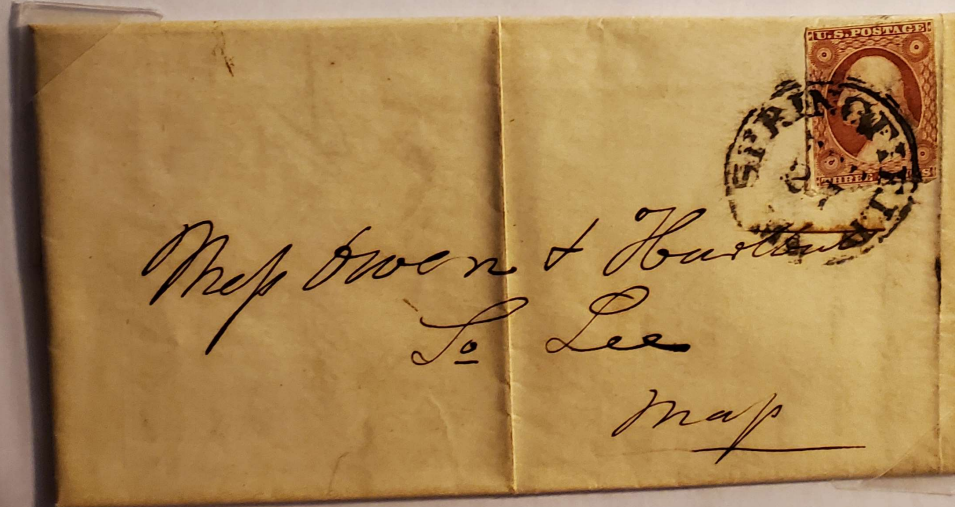 U.S. POSTAGE
THREE
SPRINGFIELD
Mess Owen & Hurlbut
So Lee
Mass